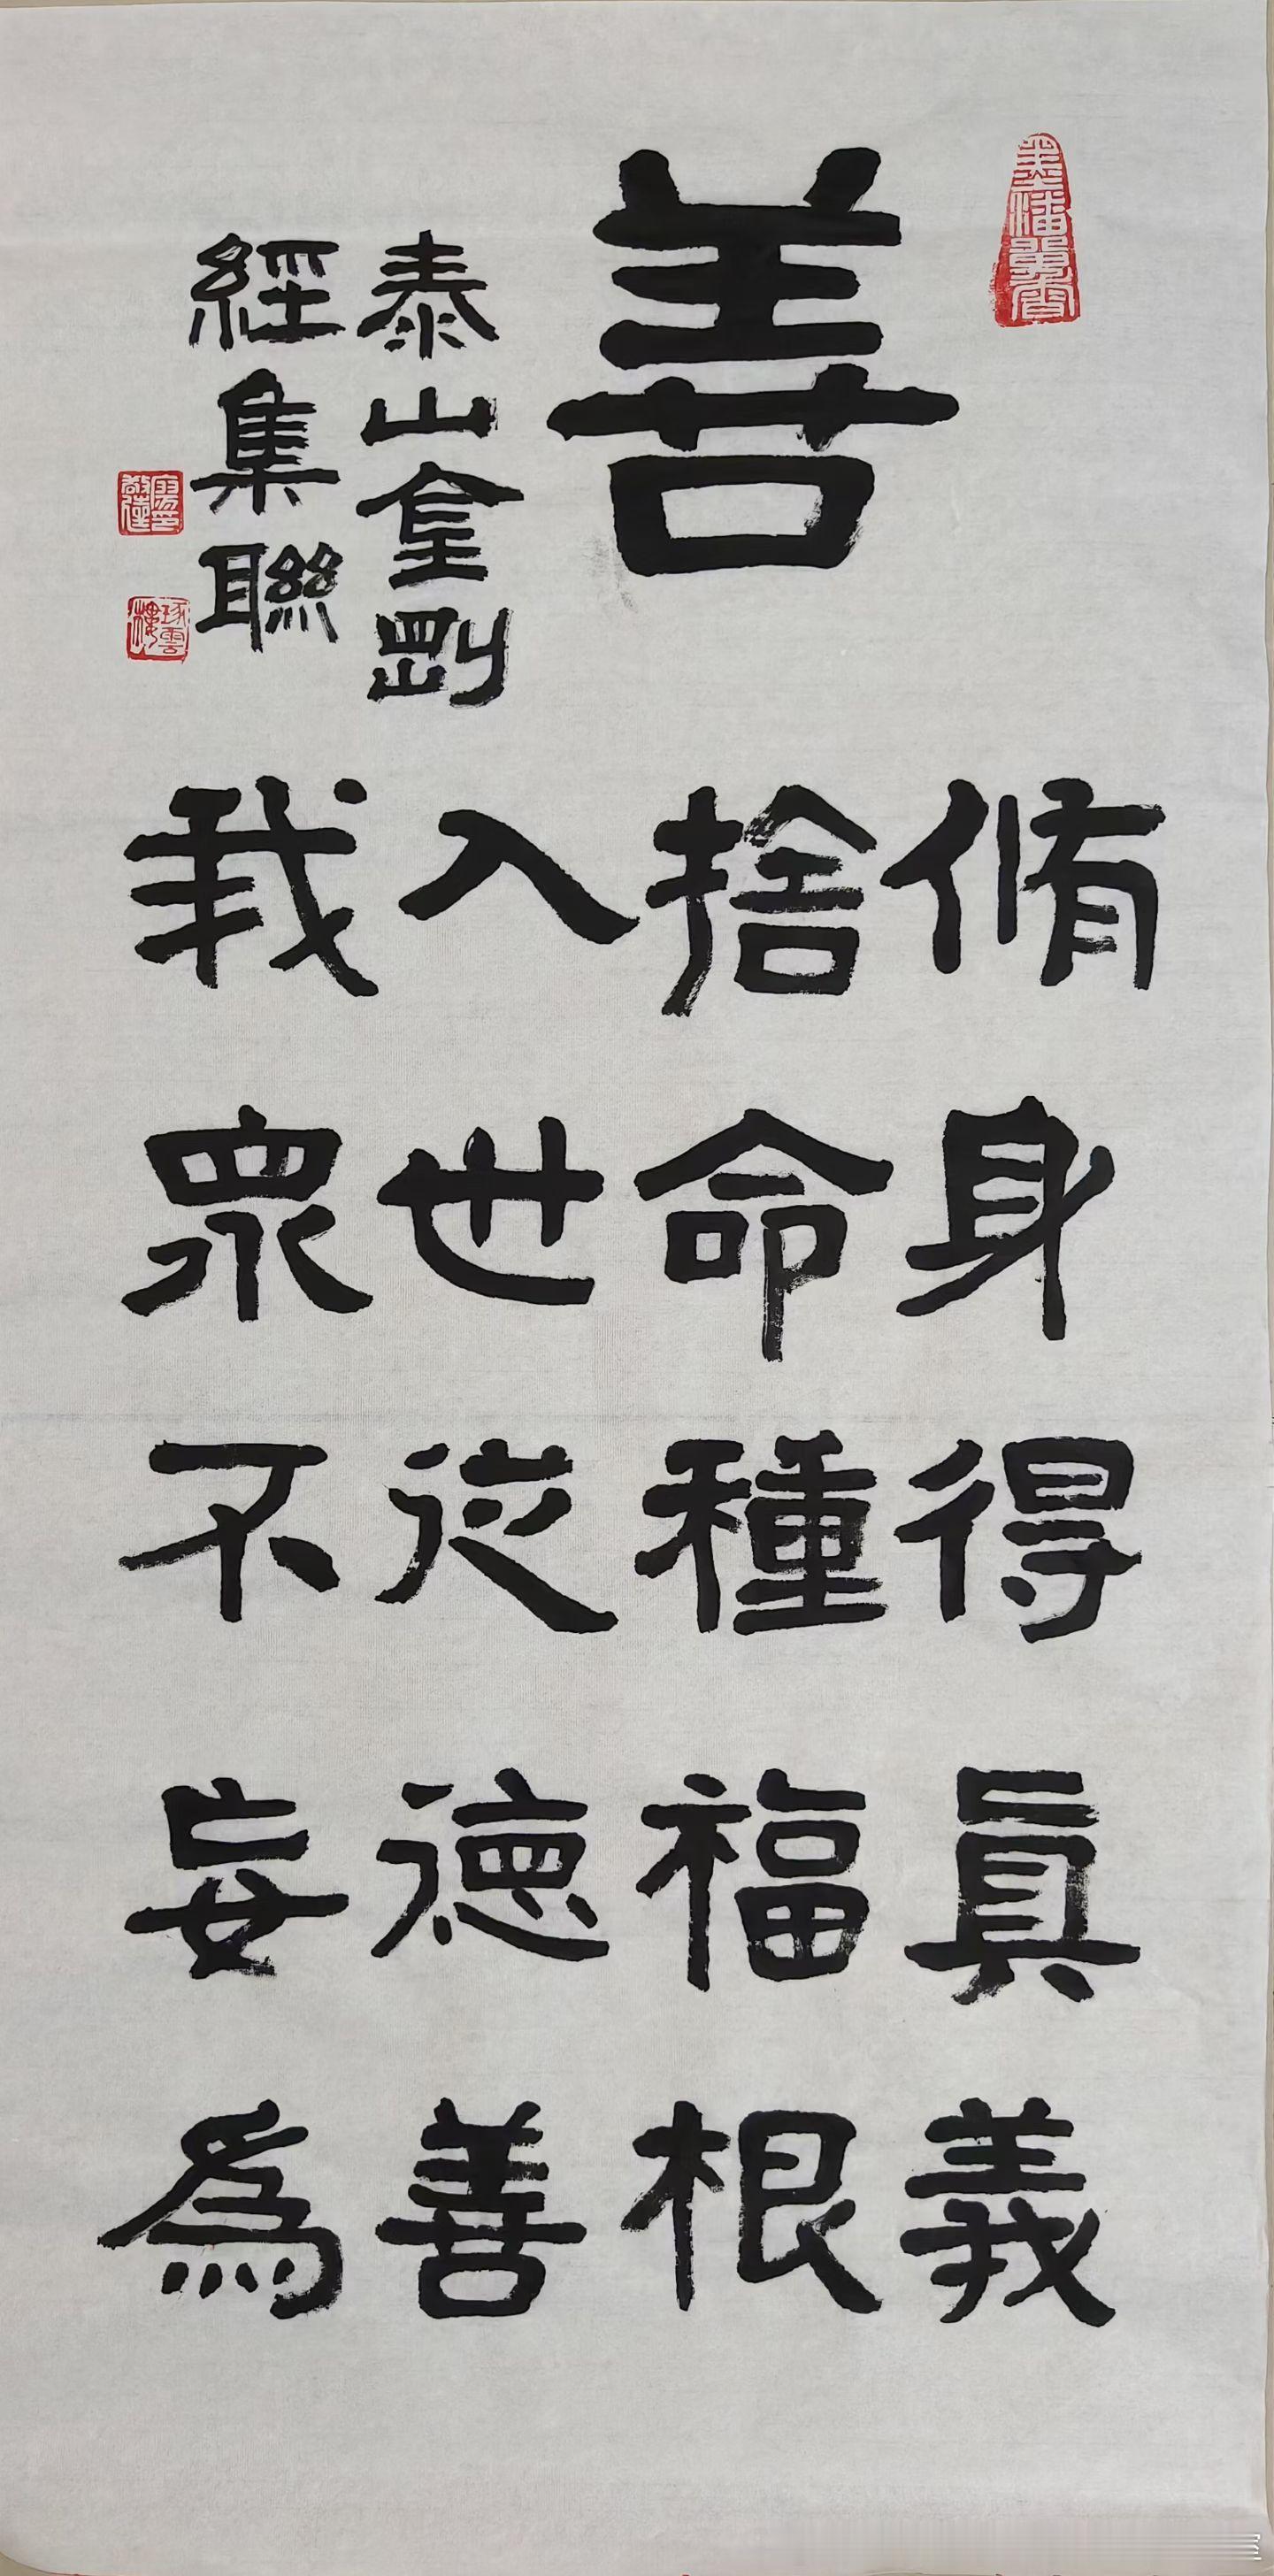 善
泰山金剛
經集聯
脩身得真義
捨命種福根
入世從德善
我眾不妄為